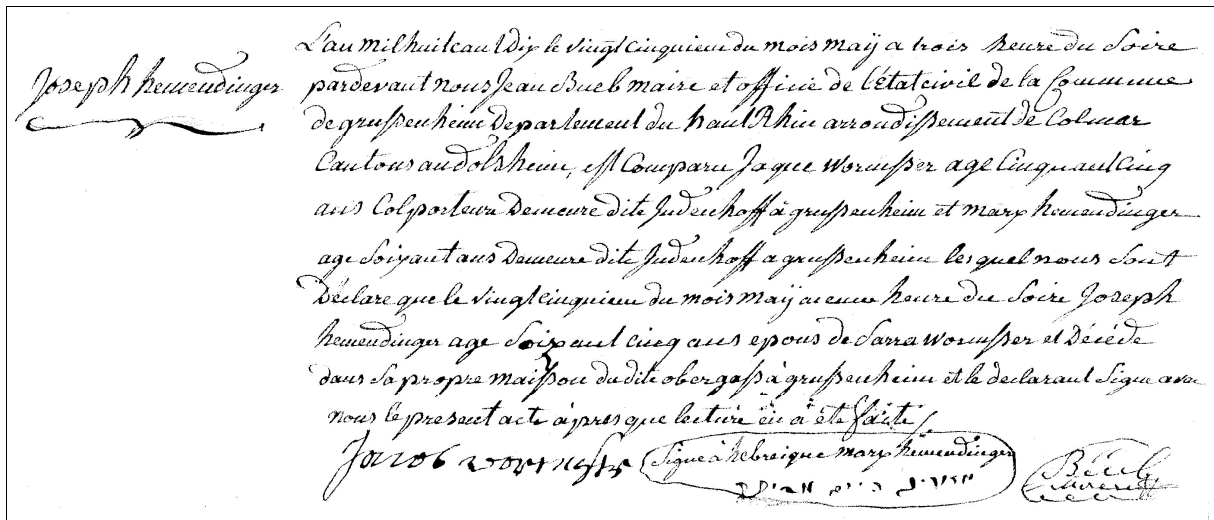 Joseph hemendinger
L'an mil huit cent dix le vingt cinquiem du mois maÿ a trois heure du Soire
pardevant nous Jean Bueb maire et officié de l'état civil de la Commune
de grussenheim Departement du haut Rhin arrondissement de Colmar
Cantons andolsheim, est Comparu Jaque wormsser age Cinquant Cinq
ans Colporteure Demeure dite Judenhoff à grussenheim et marx hemendinger
age Soixant ans Demeure dite Judenhoff a grussenheim lesquel nous Sont
Déclare que le vingt cinquiem du mois maÿ a une heure du Soire Joseph
hemendinger age Soixant cinq ans epous de Sarra wormsser et Décéde
dans Sa propre maison du dite obergass à grussenheim et le declarant Signe avec
nous le present acte à pres que lecture en à été faite
Jacob wormsser
Signe à hebreique marx hemendinger
Bueb